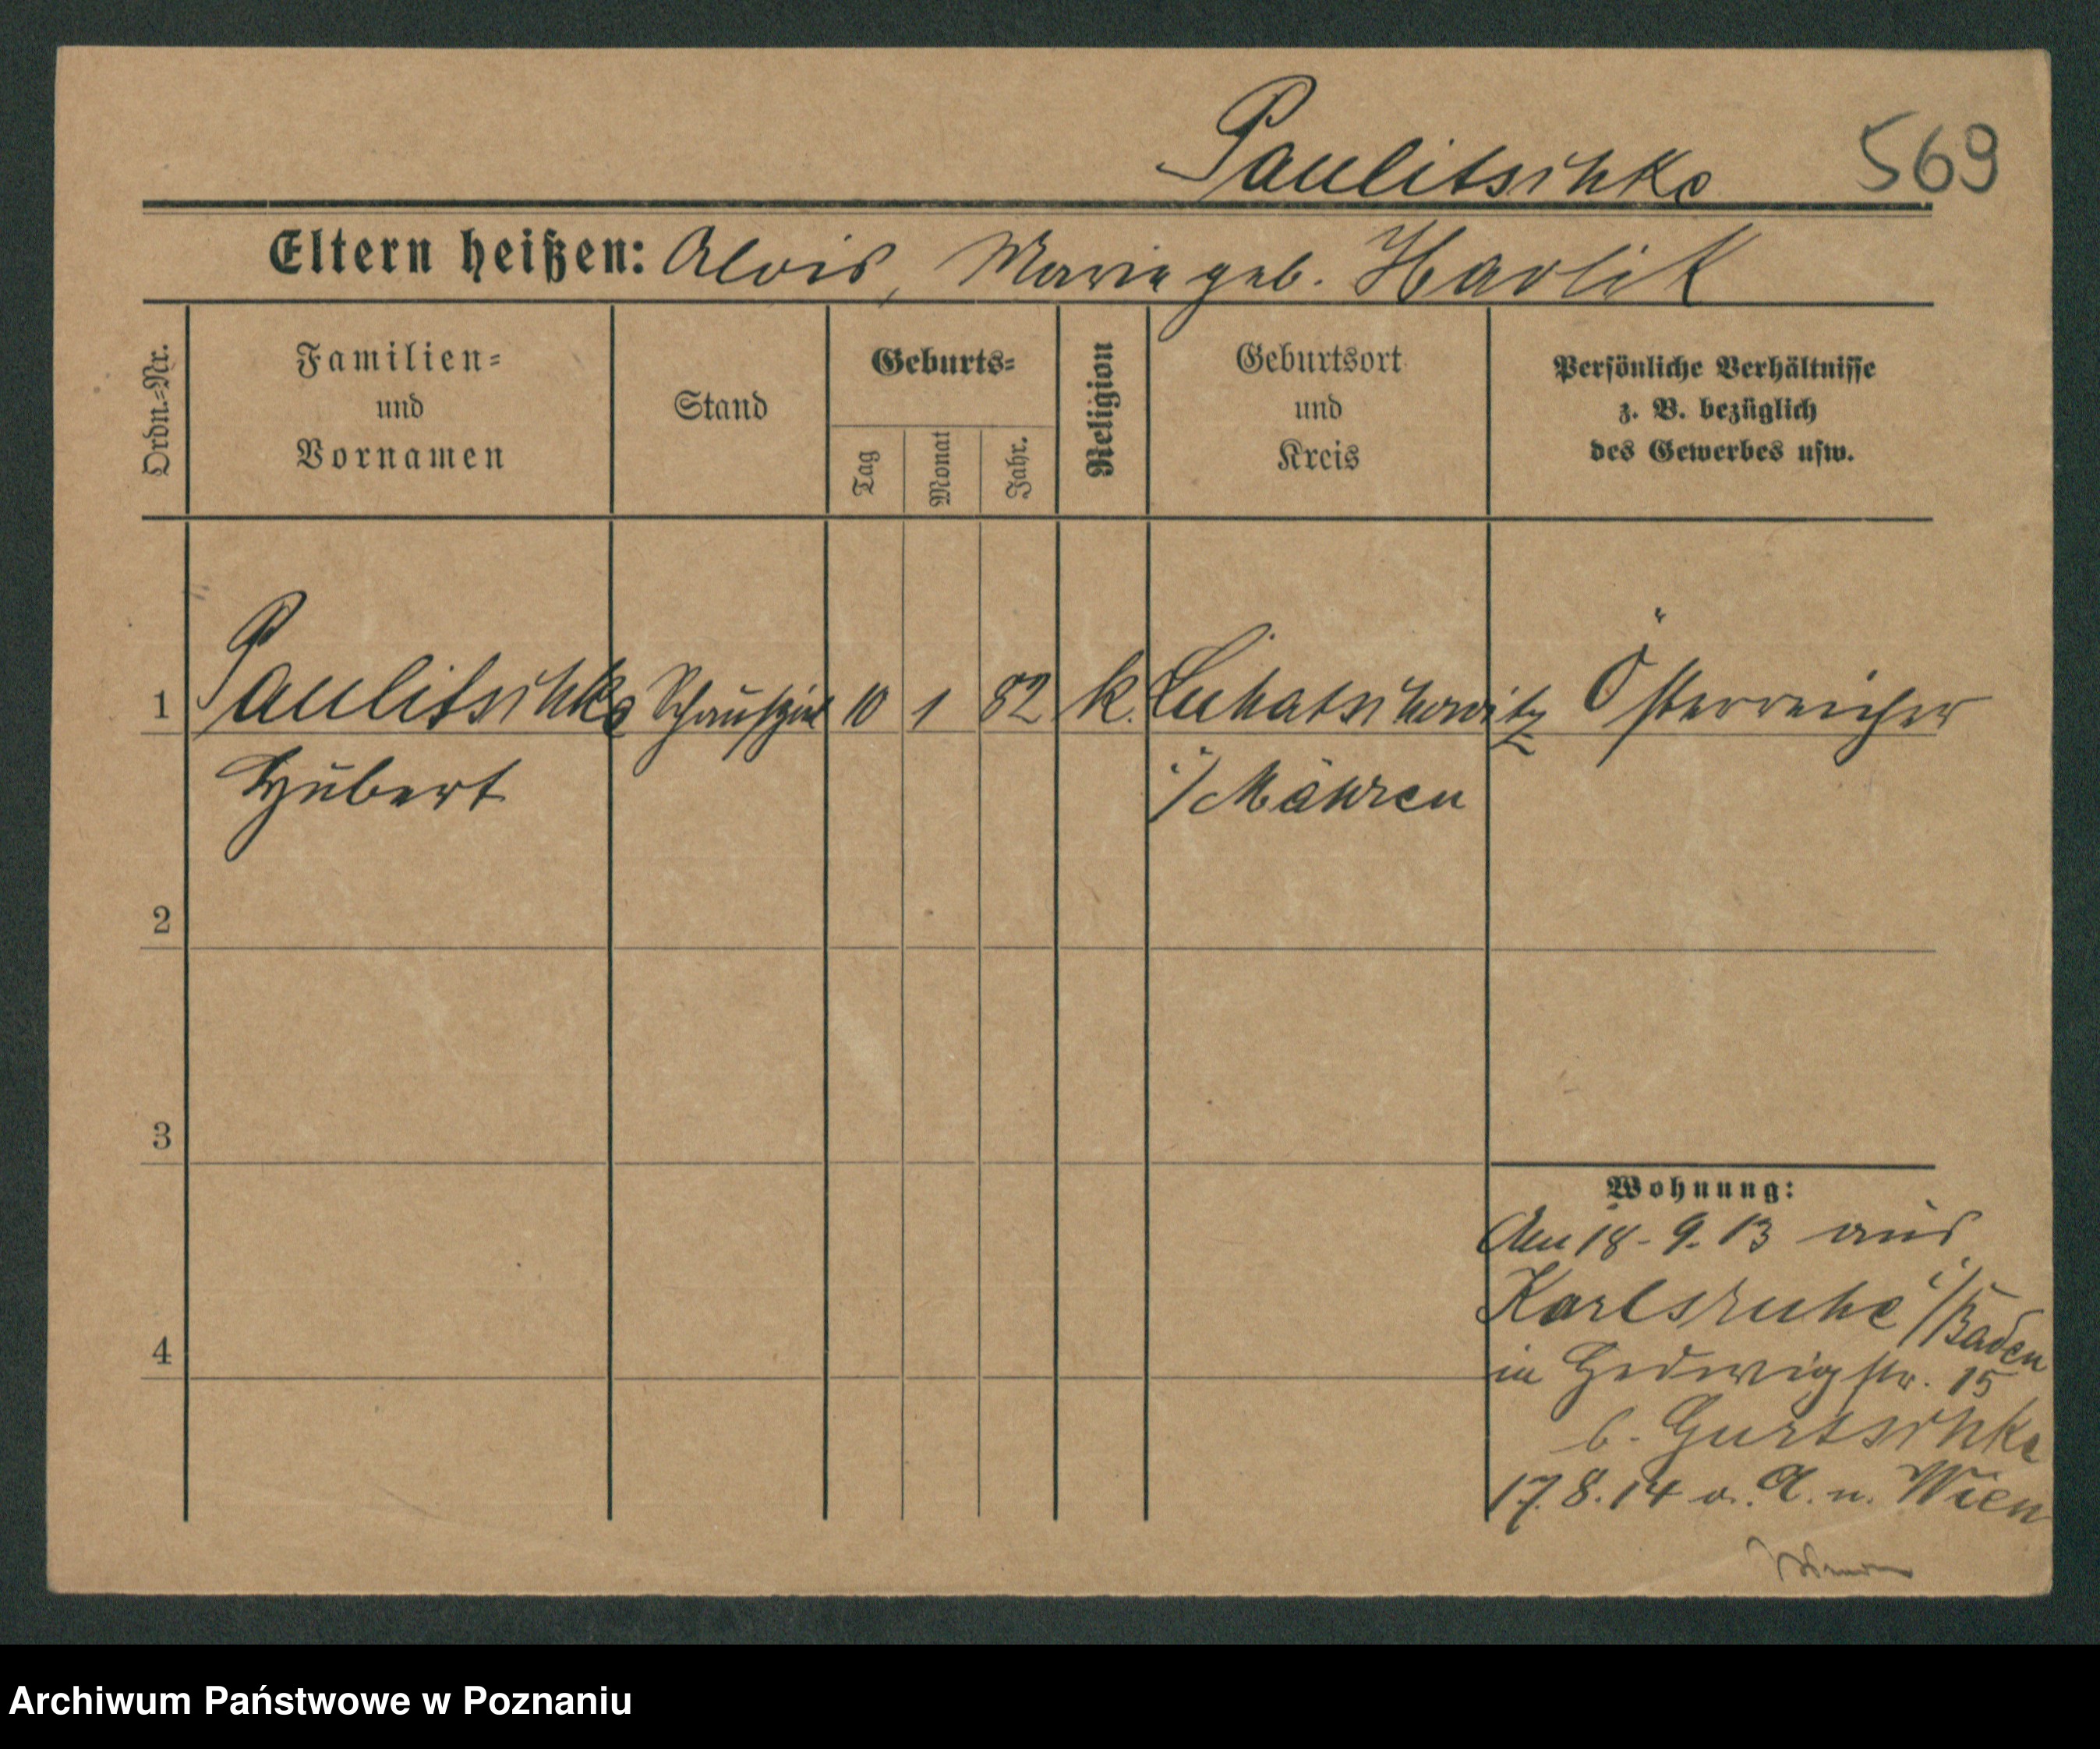 Paulitschke 569
Eltern heißen: Alois, Marie geb. Havlik
Ordn.-Nr.
Familien-
und
Vornamen
Stand
Geburts-
Tag
Monat
Jahr.
Religion
Geburtsort
und
Kreis
Persönliche Verhältnisse
z. B. bezüglich
des Gewerbes usw.
1 Paulitschke Schauspiel 10 1 82 k. Luhatschowitz Österreicher
Hubert i/Mähren
2
3
4
Wohnung:
Am 18-9.13 aus
Karlsruhe i/Baden
in Hedwigstr. 15
b. Gurtschke
17.8.14 a. A. n. Wien
Archiwum Państwowe w Poznaniu